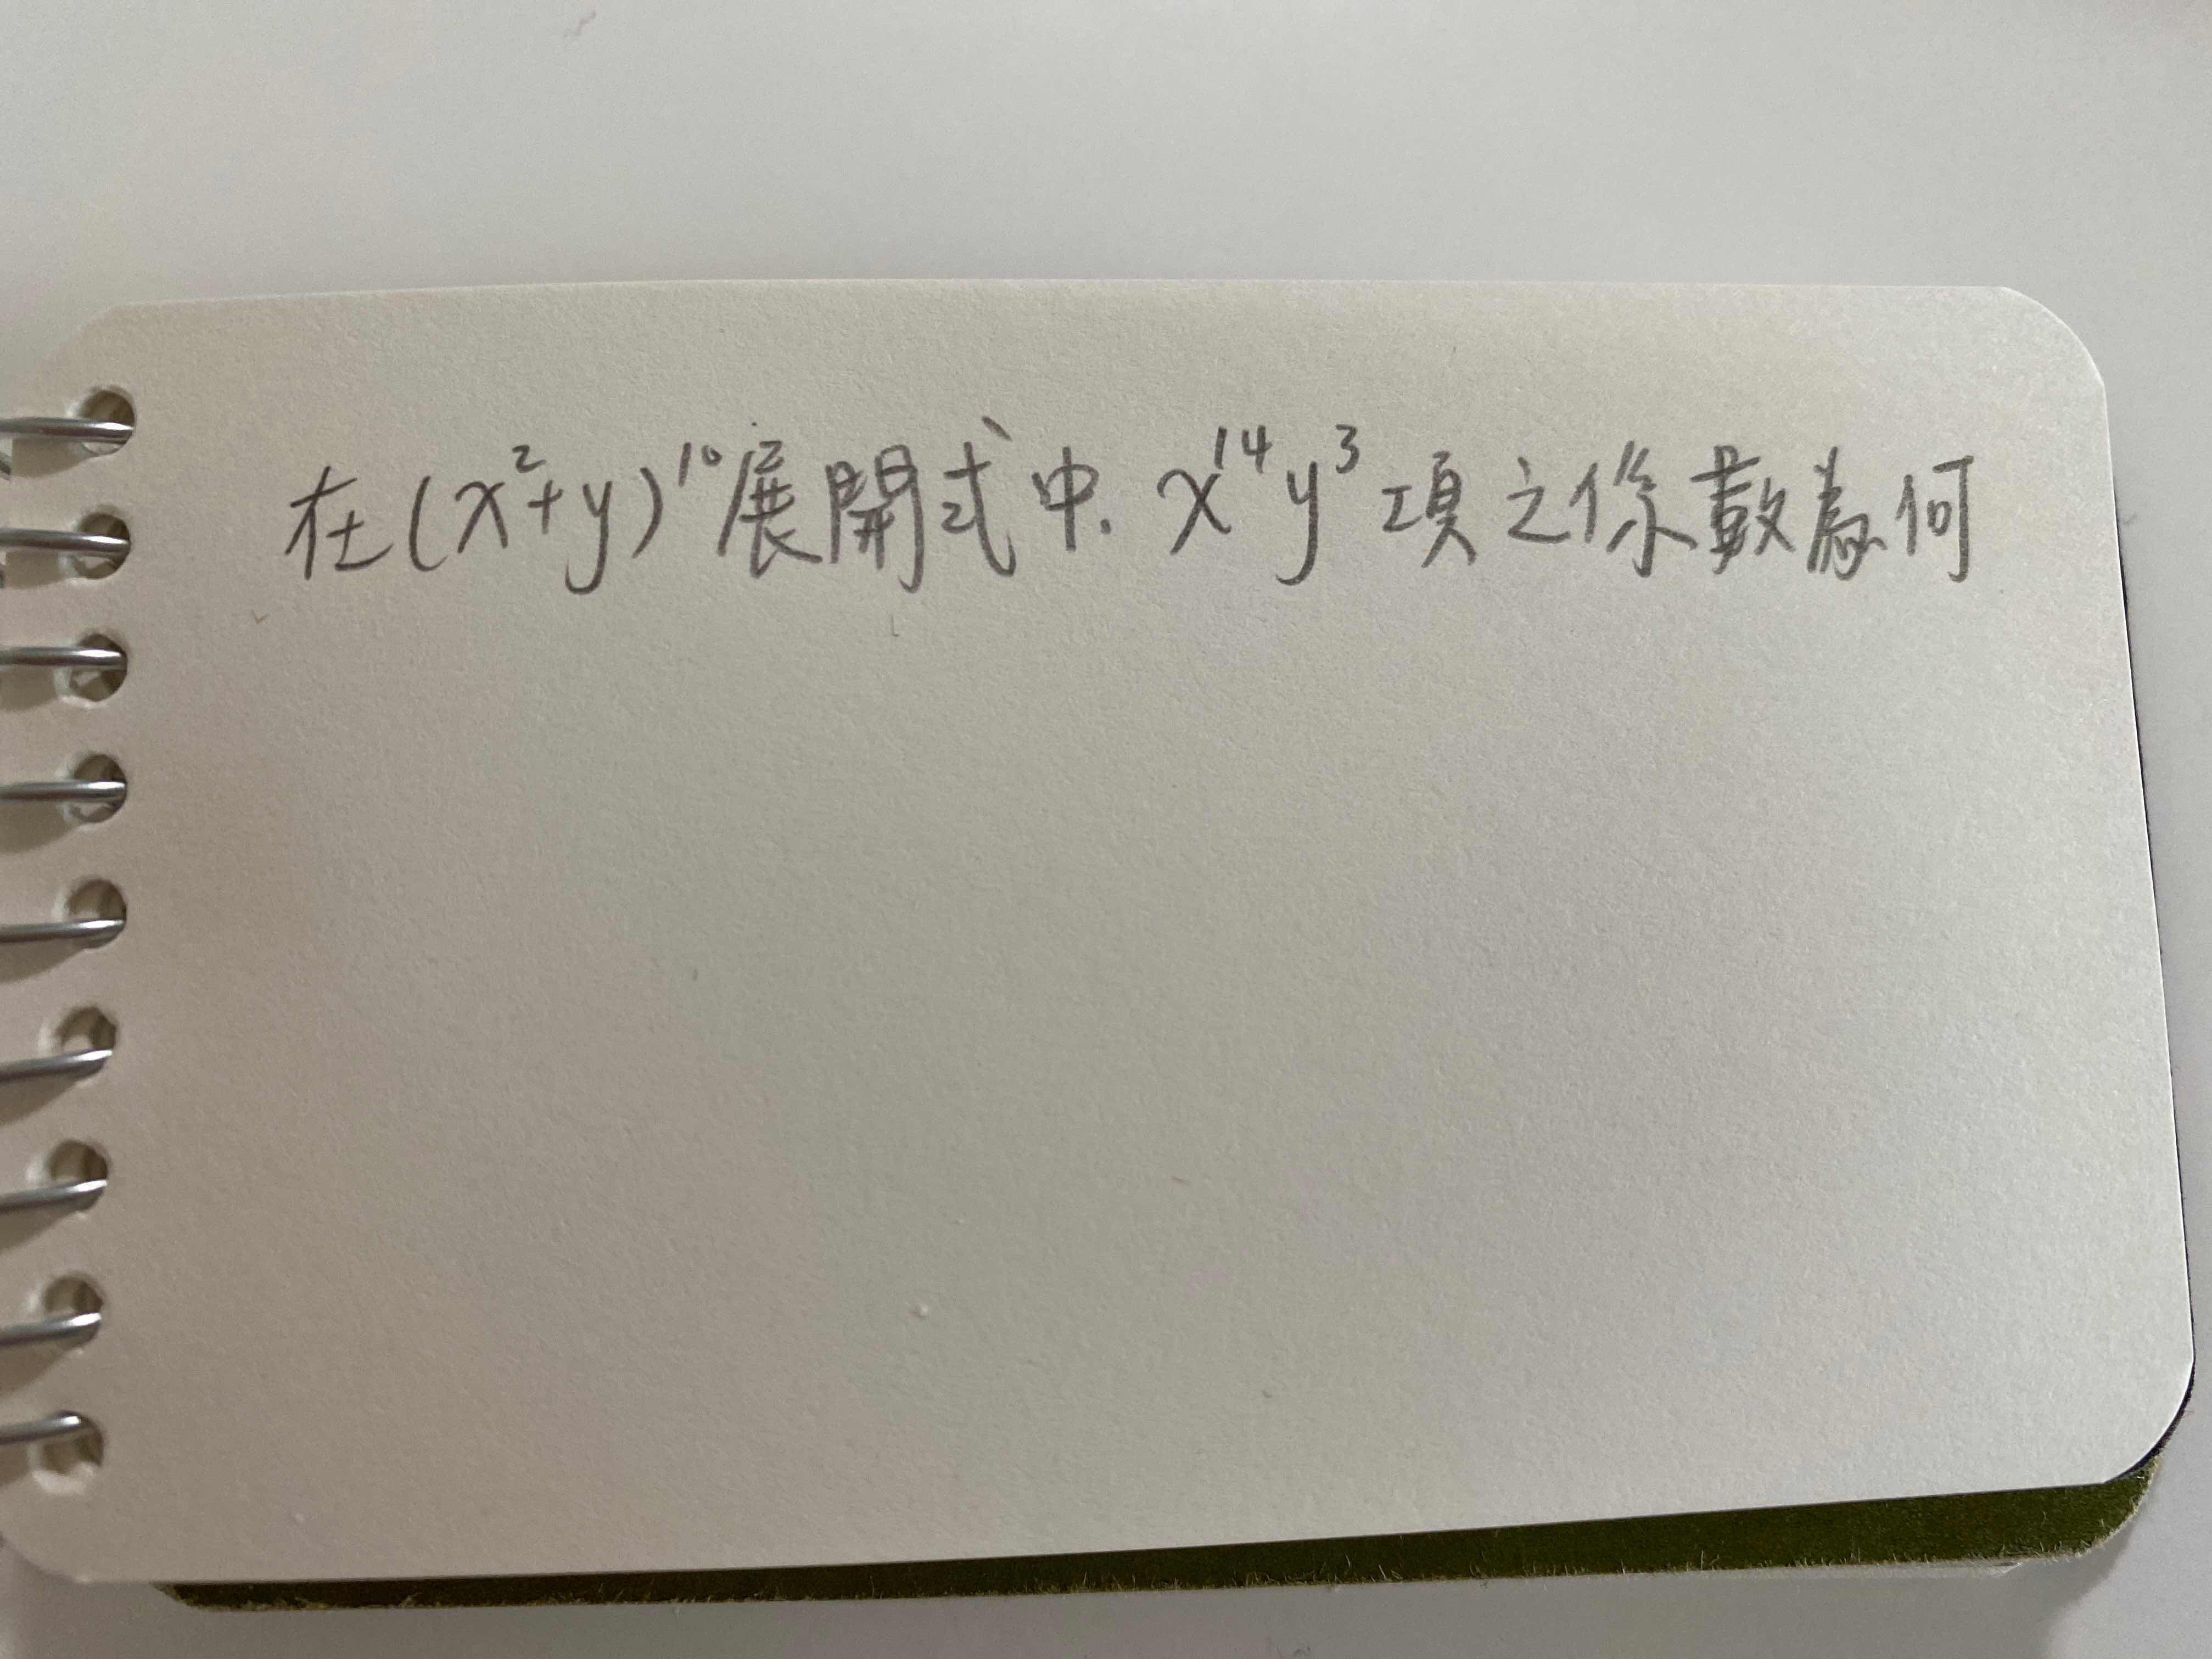 在(x²+y)¹⁰展開式中. x¹⁴y³項之係數為何